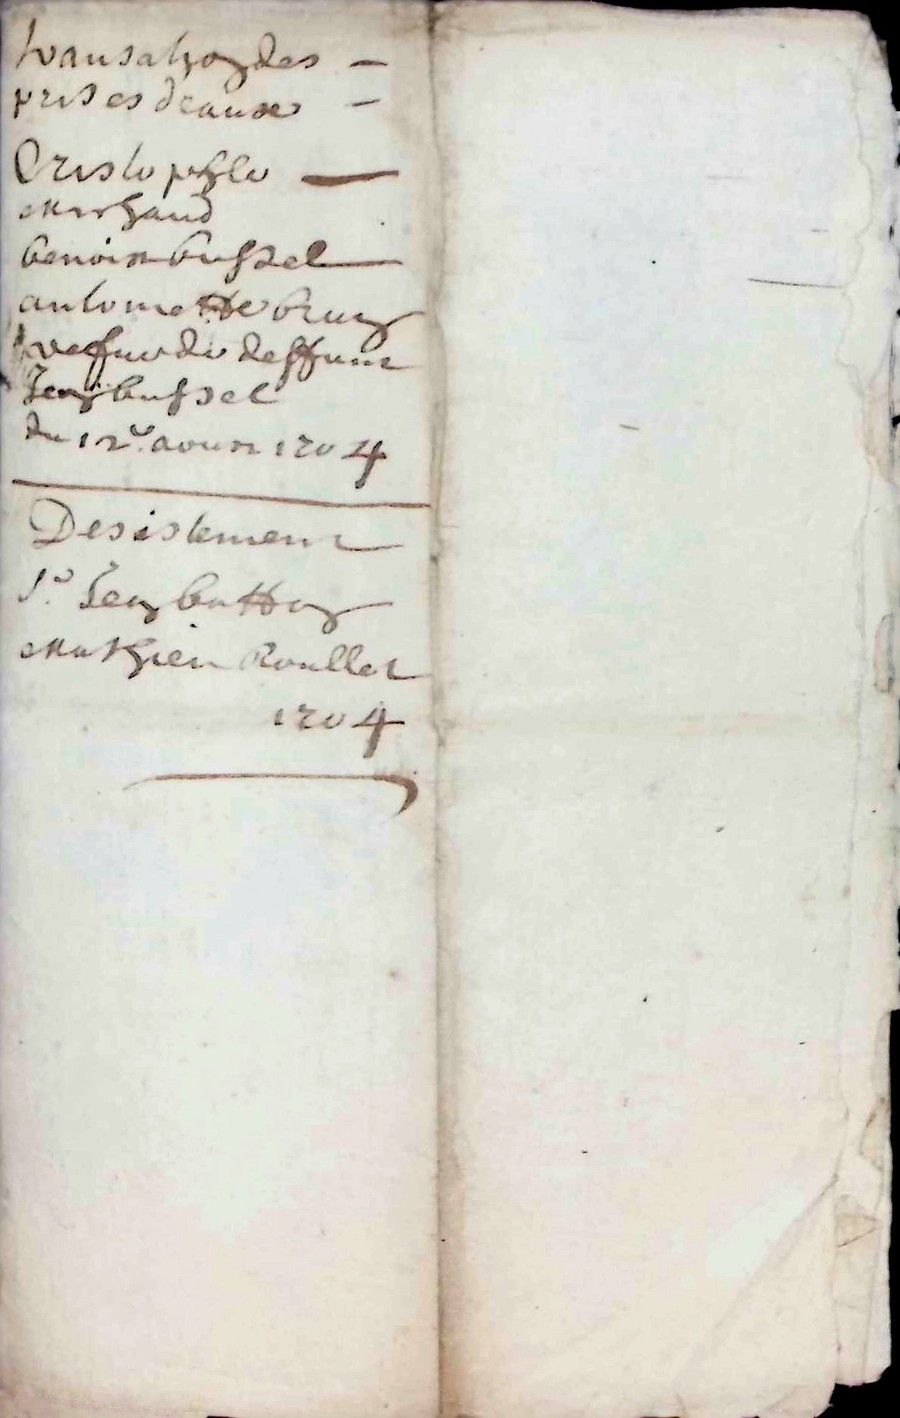 transation des —
prises deaux —
Cristophle —
Marchand
benoist bussel
antoinette brun
veffue de deffunt
Jean bussel
du 12e. aoust 1704
Desistement
Sr. Jean batton
Mathieu Roullet
1704